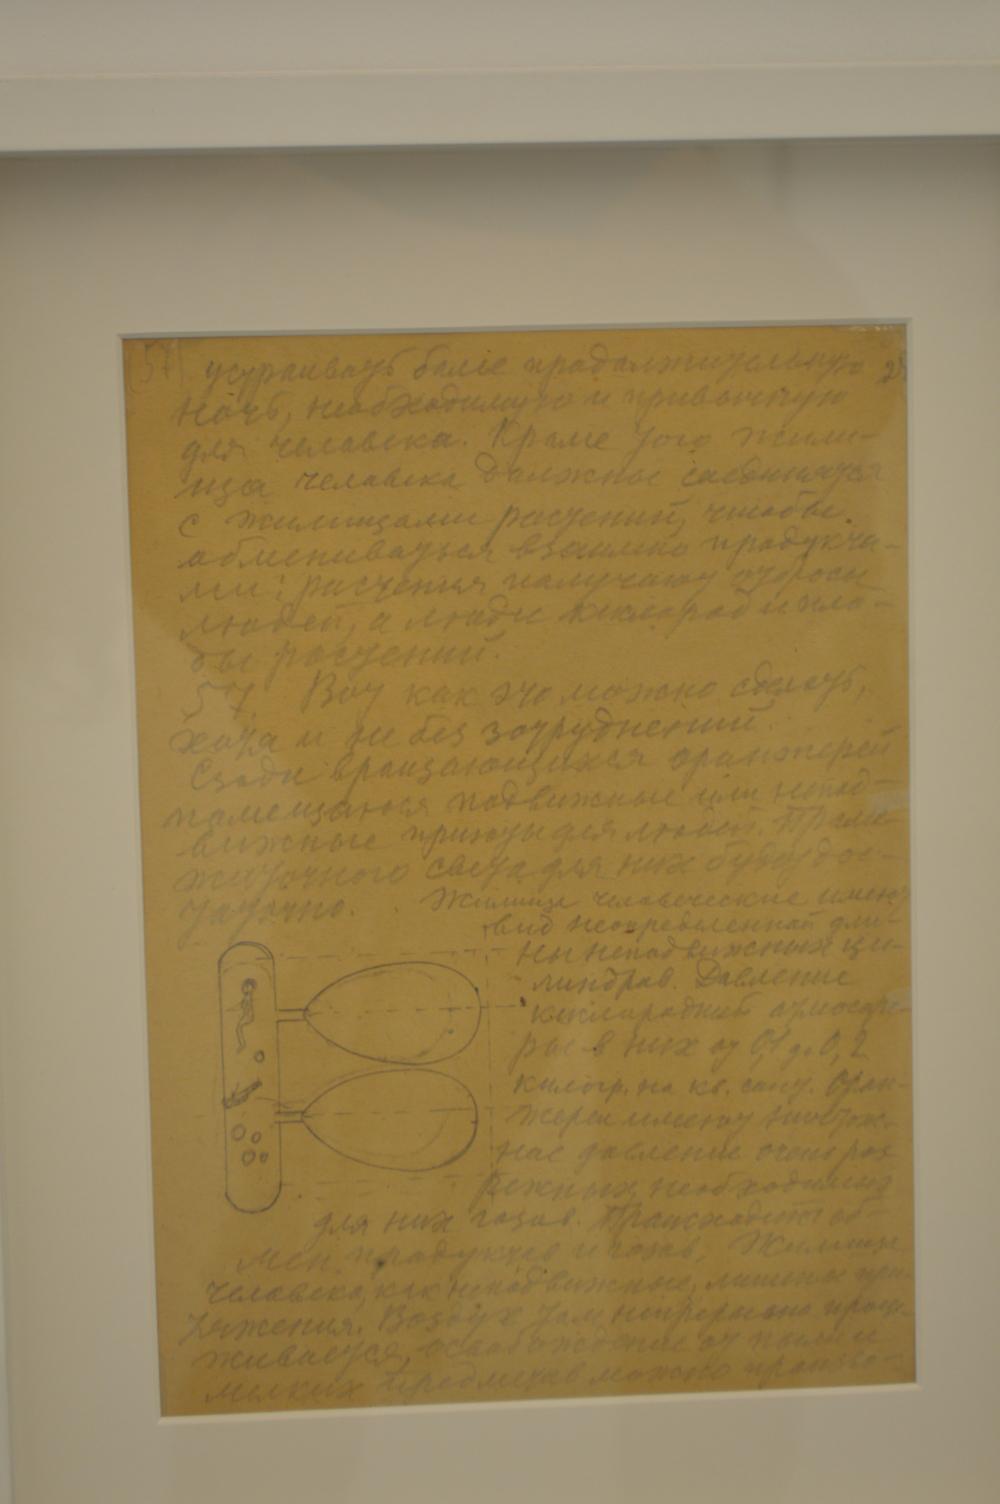 57 устраивать более продолжительную
ночь, необходимую и привычную
для человека. Кроме того жили-
ща человека должны соединяться
с жилищами растений, чтобы
обмениваться взаимно продукта-
ми: растения получают отбросы
людей, а люди кислород и пло-
ды растений.
57 Вот как это можно сделать,
хотя и не без затруднений.
Сзади вращающихся оранжерей
помещаются подвижные или непод-
вижные приюты для людей. Проме-
жуточного света для них будет дос-
таточно. Жилища человеческие имеют
вид неопределенной дли-
ны неподвижных ци-
линдров. Давление
кислородной атмосфе-
ры в них от 0,1 до 0,2
килогр. на кв. сант. Оран-
жереи имеют ничтож-
ное давление очень раз
режных, необходимых
для них газов. Происходит об-
мен продуктов и газов. Жилища
человека, как неподвижные, лишены при-
тяжения. Воздух там непрерывно
освобождение от пыли и
мелких предметов можно произво-